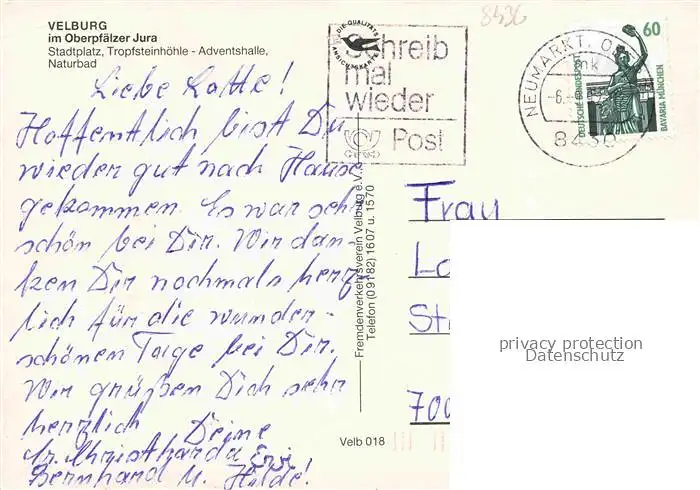 VELBURG
im Oberpfälzer Jura
Stadtplatz, Tropfsteinhöhle - Adventshalle,
Naturbad
8436
DIE QUALITÄTS
ANSICHTSKARTE
Schreib
mal
wieder
Post
NEUMARKT, O
mk
-6.
8430
60
DEUTSCHE BUNDESPOST
BAVARIA MÜNCHEN
Liebe Lotte!
Hoffentlich bist Du
wieder gut nach Hause
gekommen. Es war sehr
schön bei Dir. Wir dan-
ken Dir nochmals herz-
lich für die wunder-
schönen Tage bei Dir.
Wir grüßen Dich sehr
herzlich Deine
Sr. Christharda
Bernhard u. Hilde!
Fremdenverkehrsverein Velburg e.V.,
Telefon (09182) 1607 u. 1570
Velb 018
Frau
Lo
St
700
privacy protection
Datenschutz